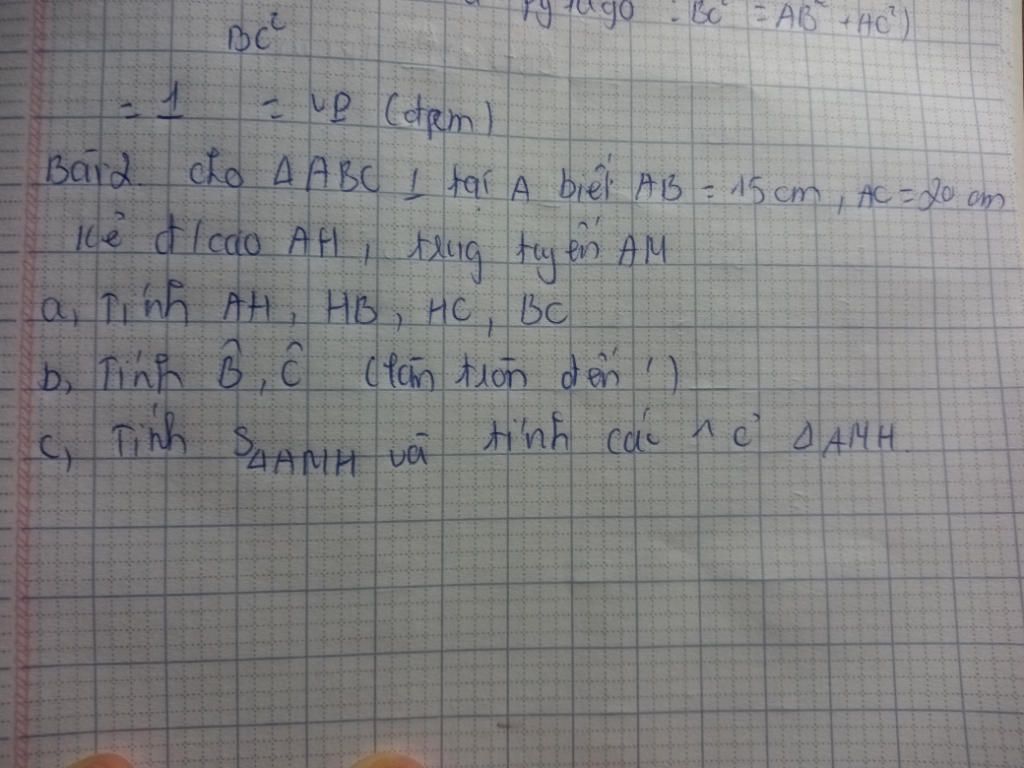 pytago : BC² = AB² + AC²)
BC²
= 1 = VP (đpcm)
Bài 2. cho Δ ABC ⊥ tại A biết AB = 15 cm, AC = 20 cm
Kẻ đ/cao AH, trung tuyến AM
a, Tính AH, HB, HC, BC
b, Tính B̂, Ĉ (làm tròn đến ')
c, Tính SΔAMH và tính các ^ củ ΔAMH.